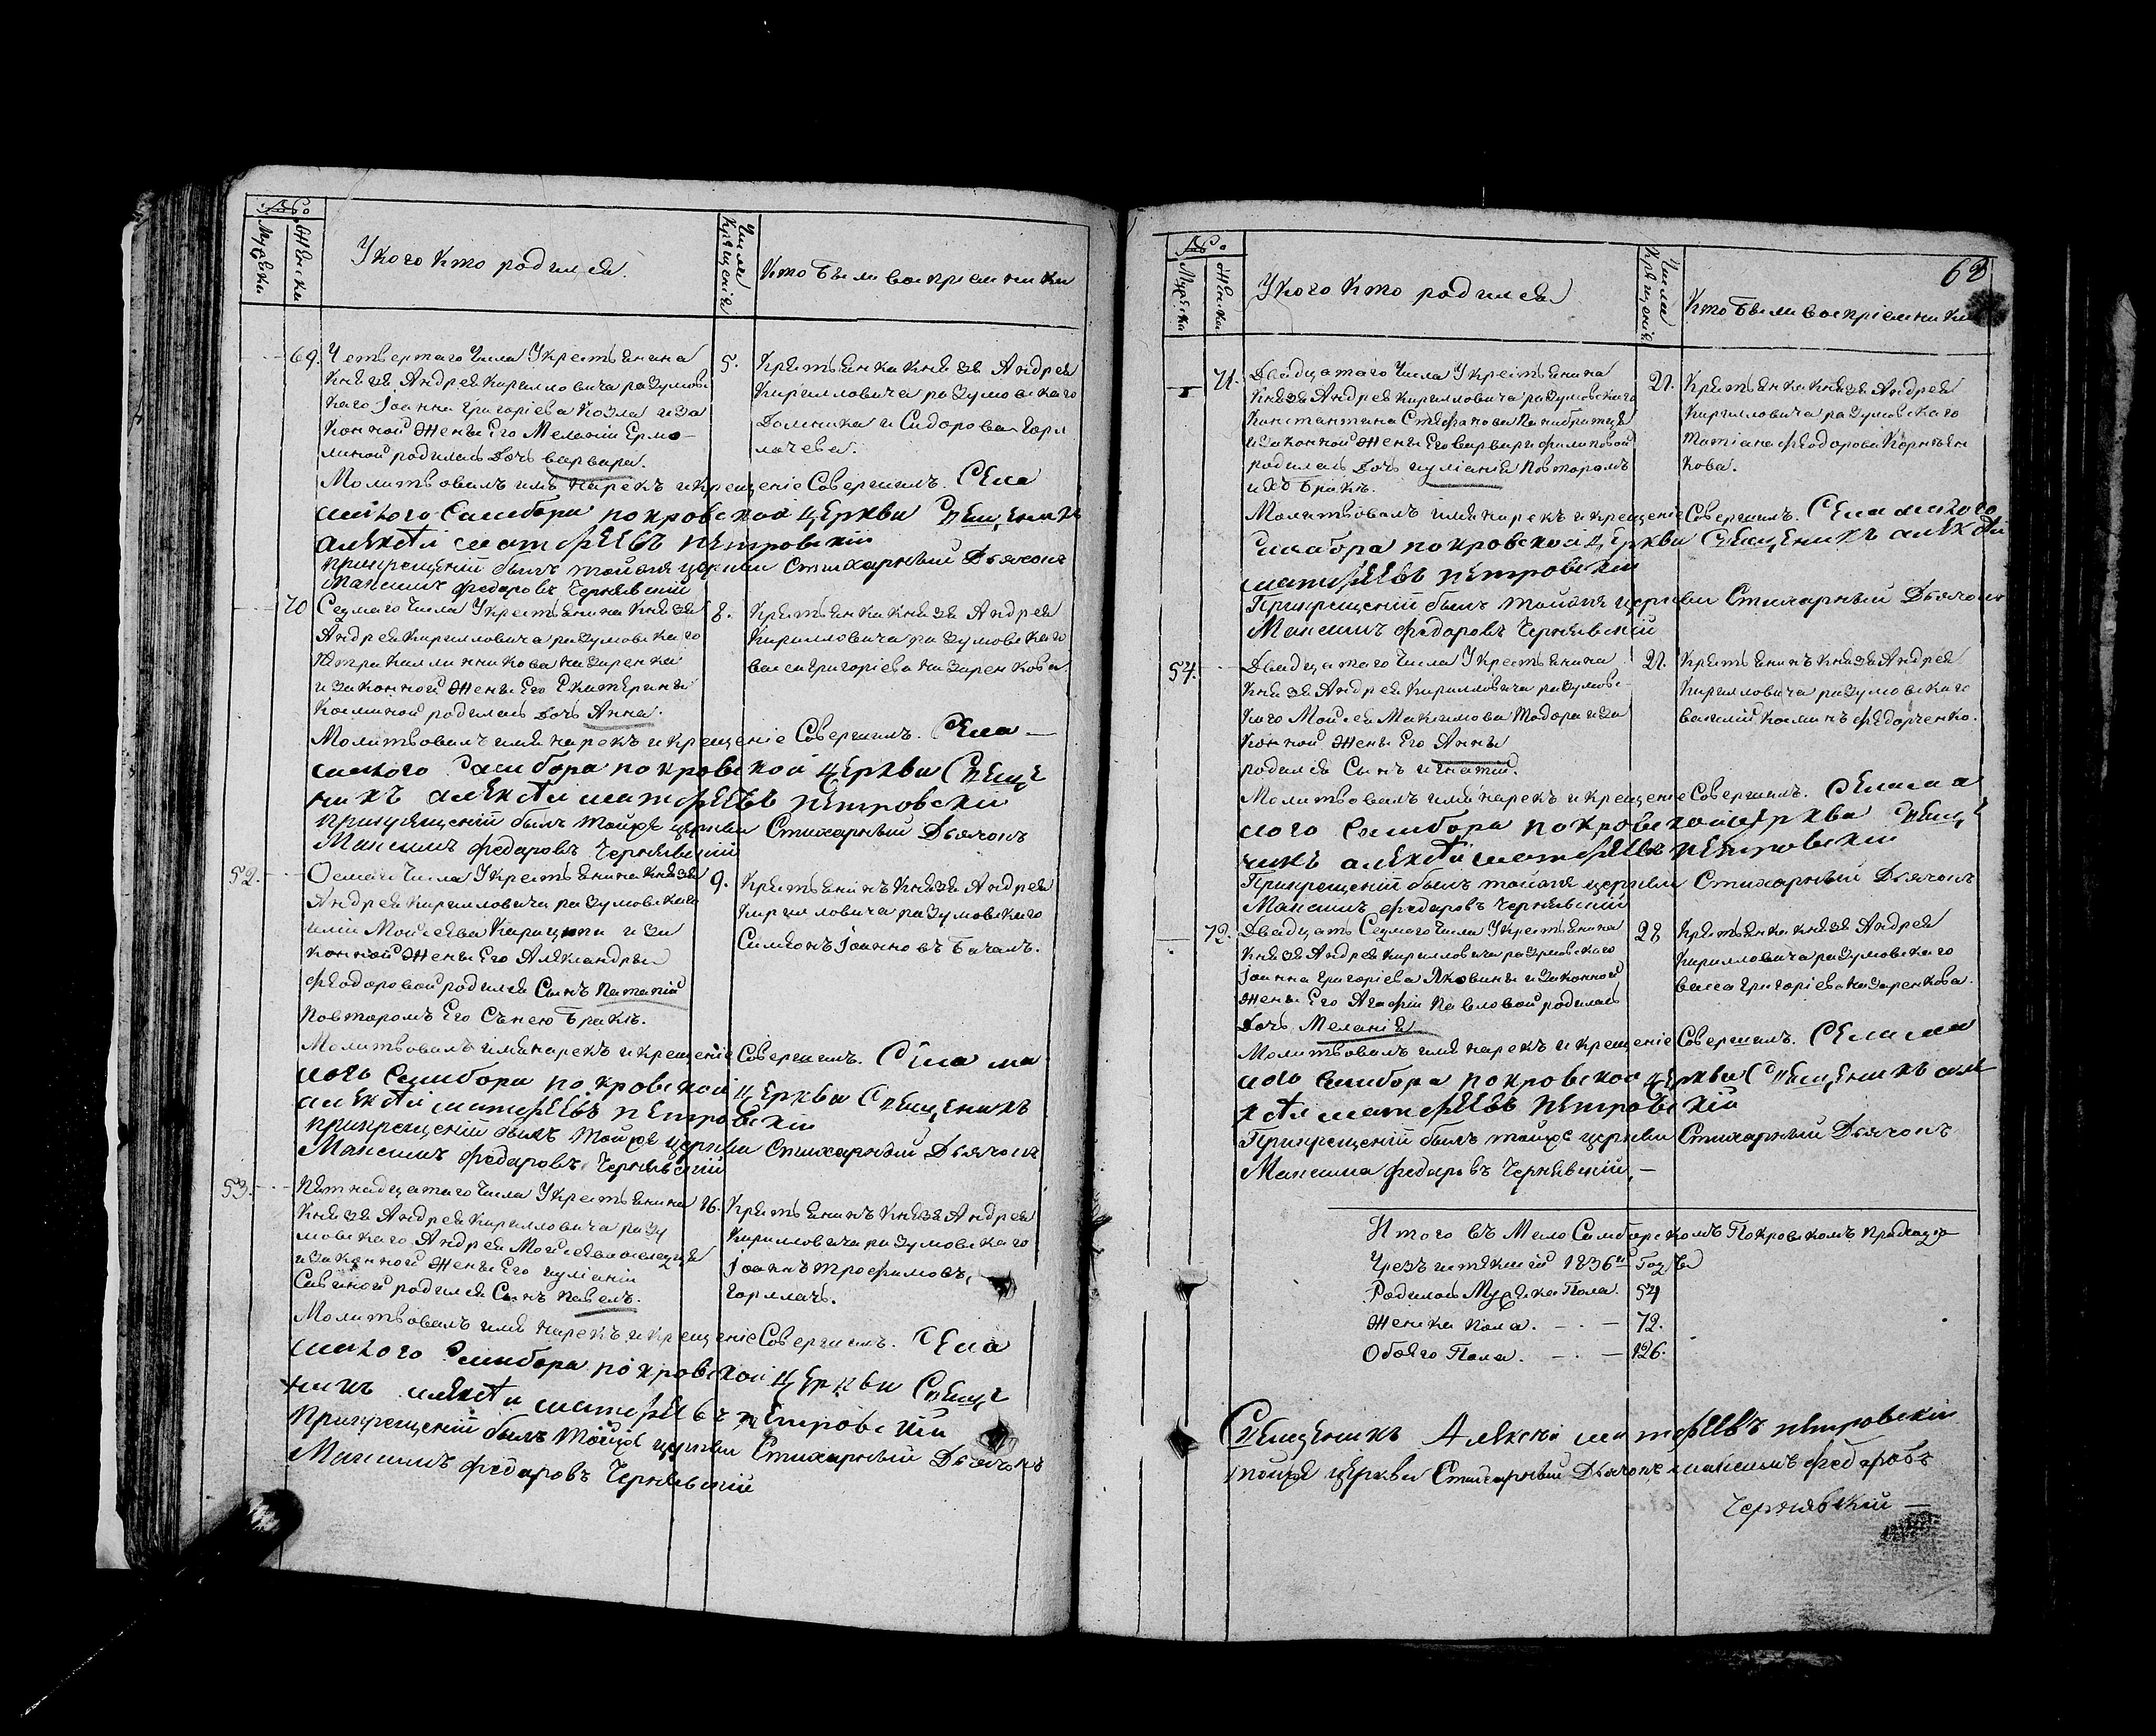 №
Мужска
Женска
У кого кто родился.
Числа Крещенія
Кто были воспріемники
69. Четвертаго Числа У крестьянина
Князя Андрея Кирилловича разумовс
каго Іоанна Григоріева Козла и за
конной Жены Его Меланіи Ермо-
линой родилась Дочь Варвара.
5. Крестьянка Князя Андрея
Кирилловича разумовскаго
Домникія Сидорова Горп
лачева.
Молитвовалъ имя нарекъ и крещеніе Совершилъ. Села
малого Самбора покровской Церкви Свещеникъ
алексей матфеевъ петровский
прикрещеніи былъ тойже церкви Стихарный Дьячокъ
Максимъ Федоровъ Чернявский
70 Седмаго Числа У крестьянина Князя
Андрея Кирилловича разумовскаго
Петра Каллинникова Назаренка
и законной Жены Его Екатерины
Косминой родилась Дочь Анна.
8. Крестьянка Князя Андрея
Кирилловича разумовскаго
васса Григоріева назаренкова
Молитвовалъ имя нарекъ и крещеніе Совершилъ. Села
малого Самбора покровской Церкви Свеще
никъ алексей матфеевъ петровский
прикрещеніи былъ тойже церкви Стихарный Дьячокъ
Максимъ Федоровъ Чернявский
52. Осмаго Числа У крестьянина Князя
Андрея Кирилловича разумовскаго
иліи Моисеева и за
конной Жены Его Александры
Феодоровой родился Сынъ Патапій
Повторомъ Его Сънею Бракѣ.
9. Крестьянинъ Князя Андрея
Кирилловича разумовскаго
Симеонъ Іоанновъ Бачалъ.
Молитвовалъ имя нарекъ и крещеніе Совершилъ. Села ма
лого Самбора покровской Церкви Свещеникъ
алексей матфеевъ петровский
прикрещеніи былъ тойже церкви Стихарный Дьячокъ
Максимъ Федоровъ Чернявский
53. Пятнадцатаго Числа У крестьянина
Князя Андрея Кирилловича разу
мовскаго Андрея Моисеева
и законной Жены Его иуліаніи
Савиной родился Сынъ Павелъ.
16. Крестьянинъ Князя Андрея
Кирилловича разумовскаго
Іоаннъ Трофимовъ,
Горплачь.
Молитвовалъ имя нарекъ и крещеніе Совершилъ. Села
малого Самбора покровской Церкви Свеще
никъ алексей матфеевъ петровский
Прикрещеніи былъ тойже церкви Стихарный Дьячокъ
Максимъ Федоровъ Чернявский
63
№
Мужска
Женска
У кого кто родился
Числа Крещенія
Кто были воспріемники
71. Двадцатаго Числа У крестьянина
Князя Андрея Кирилловича разумовскаго
Константина Стефанова Панибратца
и законной Жены Его варвары филиповой
родилась Дочь иуліанія Повторомъ
ихъ Бракѣ.
21. Крестьянка Князя Андрея
Кирилловича разумовскаго
татіана Феодорова Корнѣен
кова.
Молитвовалъ имя нарекъ и крещеніе Совершилъ. Села малого
Самбора покровской Церкви Свещеникъ алексей
матфеевъ петровский
Прикрещеніи былъ тойже церкви Стихарный Дьячокъ
Максимъ Федоровъ Чернявский
54. Двадцатаго Числа У крестьянина
Князя Андрея Кирилловича разумовс-
каго Моисея Максимова Тодора и за
конной Жены Его Анны
родился Сынъ игнатій.
21. Крестьянинъ Князя Андрея
Кирилловича разумовскаго
василій Касминъ Федорченко.
Молитвовалъ имя нарекъ и крещеніе Совершилъ. Села ма
лого Самбора покровской Церкви Свеще
никъ алексей матфеевъ петровский
Прикрещеніи былъ тойже церкви Стихарный Дьячокъ
Максимъ Федоровъ Чернявский
72. Двадцать Седмаго Числа У крестьянина
Князя Андрея Кирилловича разумовскаго
Іоанна Григоріева Яковины и законной
Жены Его Агафіи Павловой родилась
Дочь Меланія
28 Крестьянка Князя Андрея
Кирилловича разумовскаго
васса Григоріева Назаренкова.
Молитвовалъ имя нарекъ и крещеніе Совершилъ. Села ма
лого Самбора покровской Церкви Свещеникъ але
ксей матфеевъ петровскій
Прикрещеніи былъ тойже церкви Стихарный Дьячокъ
Максимъ Федоровъ Чернявский. —
Итого въ Мало Самборскомъ Покровскомъ Приходѣ
Чрезъ истекшій 1836й Годъ
Родилось Мужска Пола. 54
Женска Пола. — . — 72.
Обоего Пола. — . — 126.
Свещеникъ Алексей матфеевъ петровский
тойже церкви Стихарный Дьячокъ максимъ федоровъ
Чернявский —